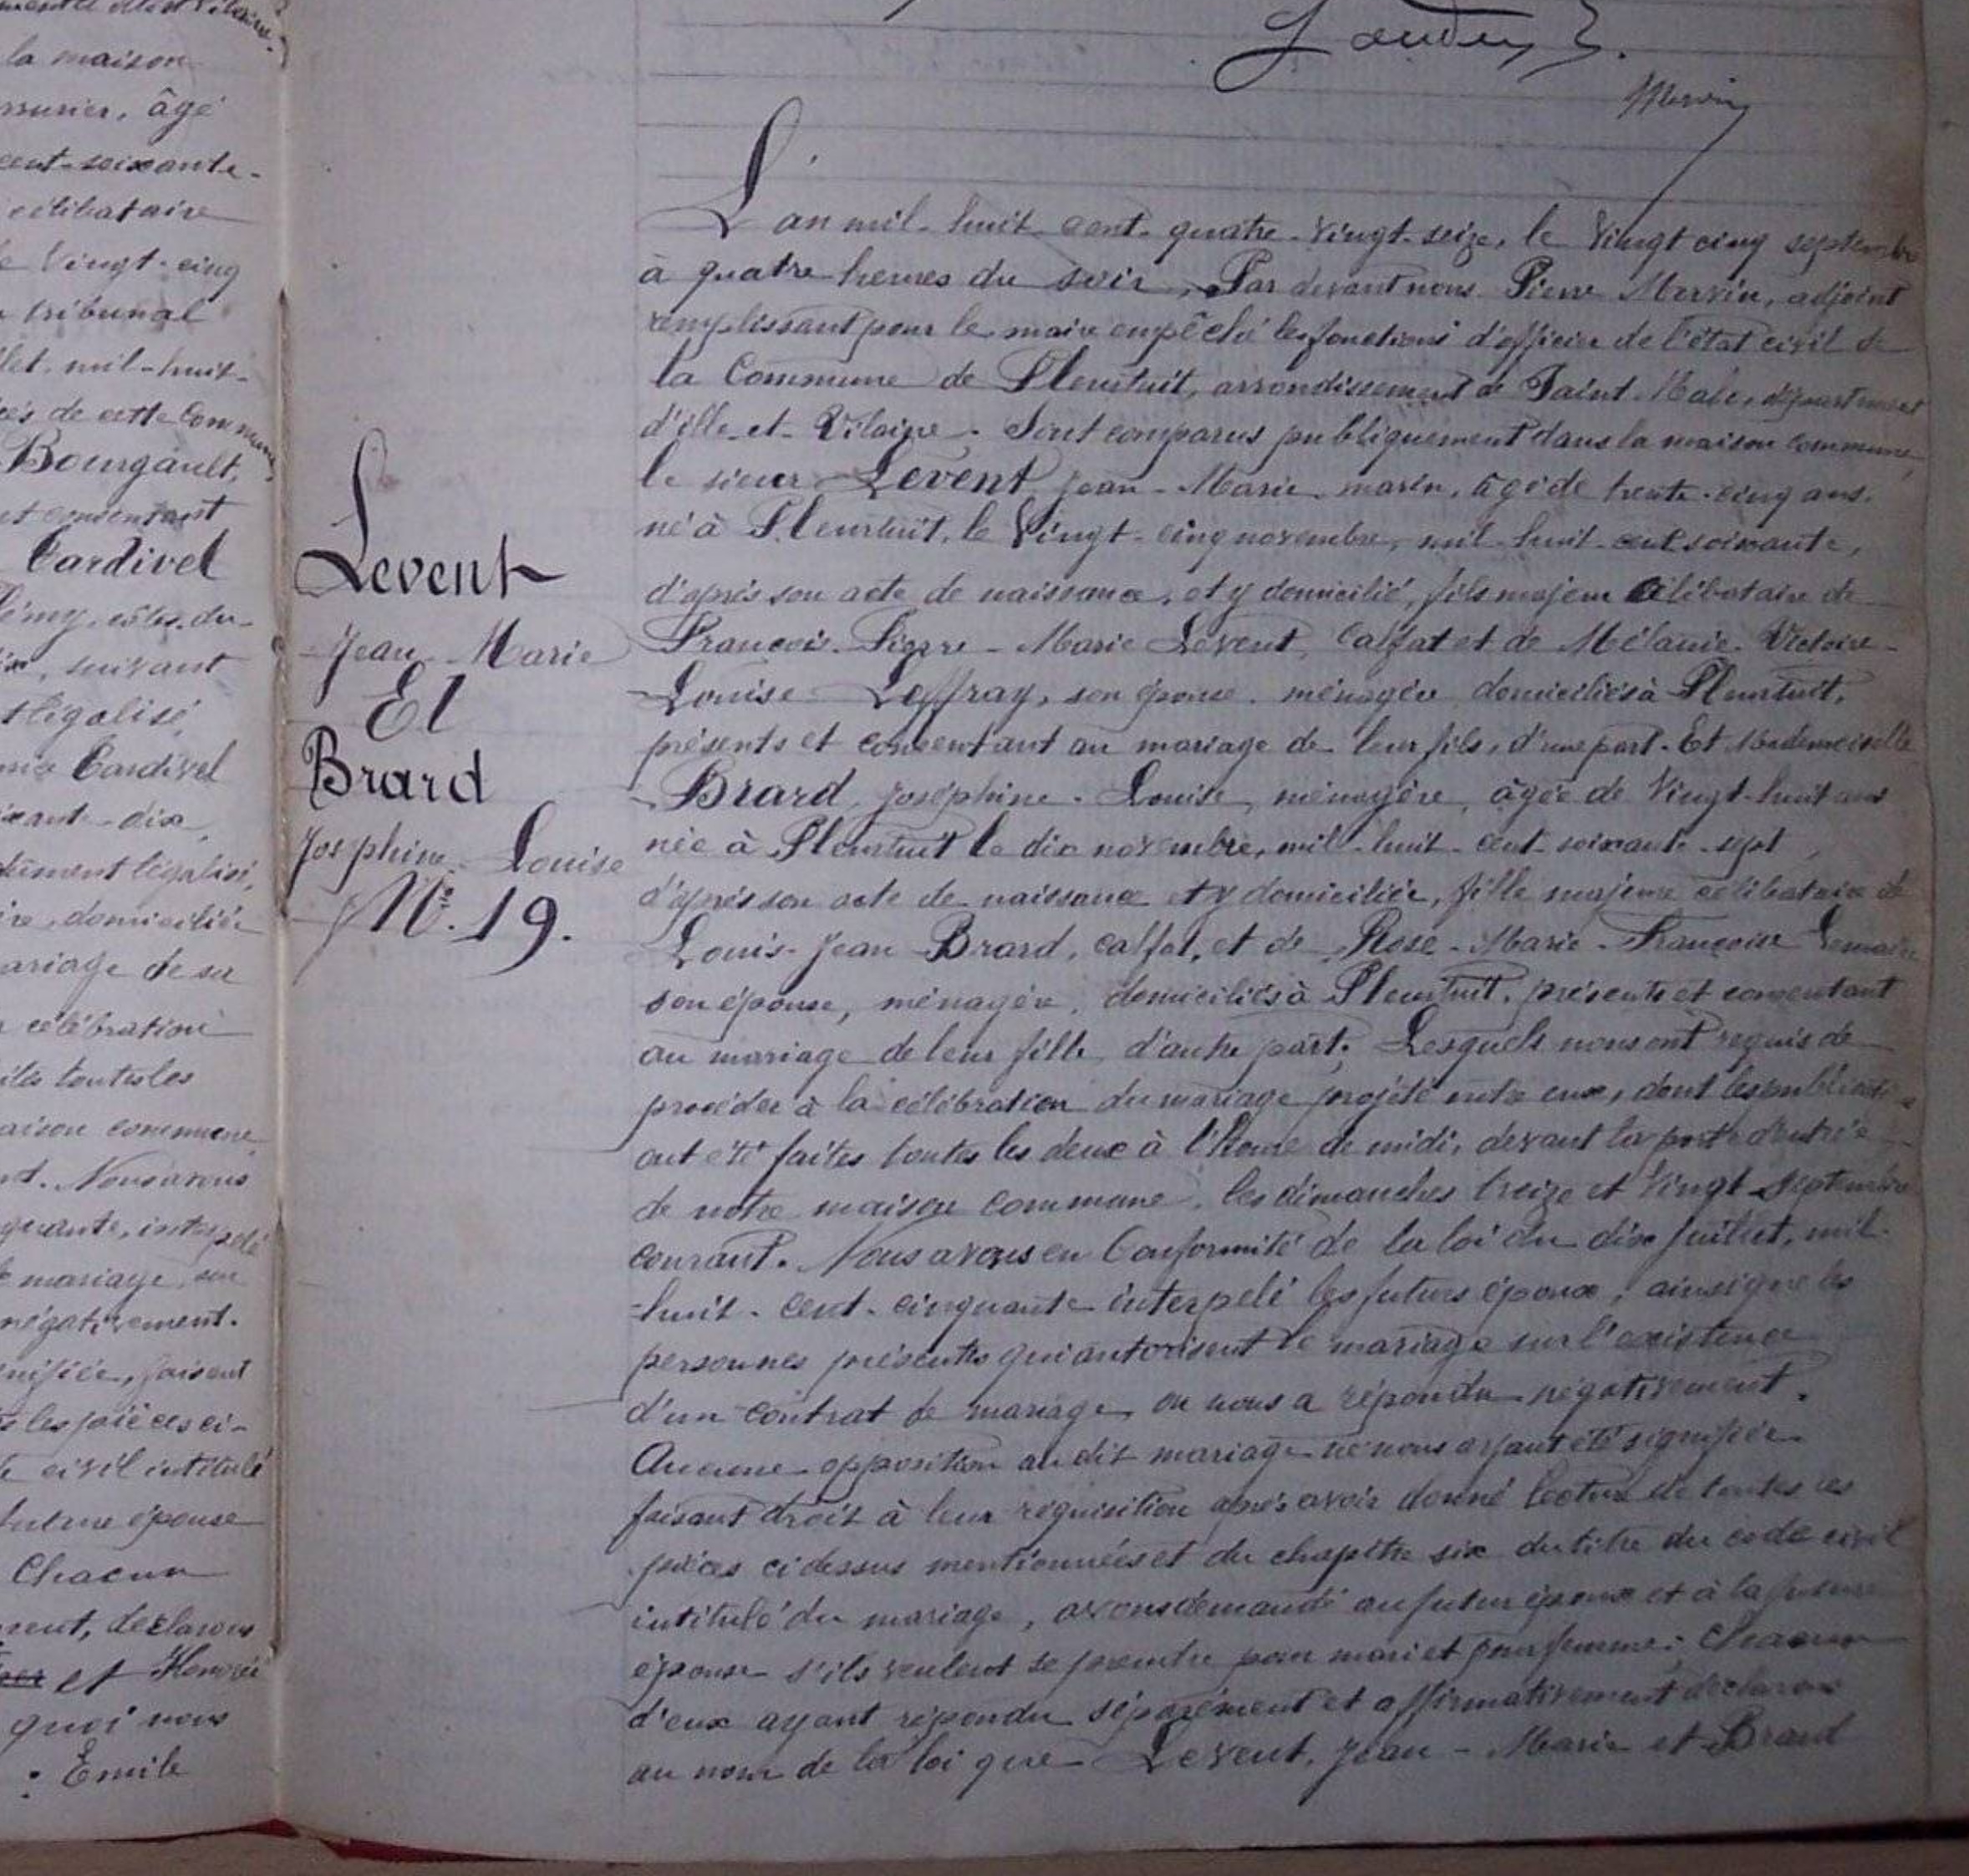 la maison
âgé
cent-soixante-
célibataire
Vingt-cinq
tribunal
mil-huit-
de cette Commune
Bourgault,
et consentant
Cardivel
suivant
légalisé,
Cardivel
dix,
dûment légalisé,
domiciliée
mariage de sa
célébration
toutes les
maison commune
Nous avons
cinquante, interpelé
mariage, son
négativement.
faisant
les pièces ci-
civil intitulé
future épouse
Chacun
déclarons
et Honorée
quoi nous
: Emile
Levent
Jean-Marie
Et
Brard
Joséphine-Louise
N° 19.
Mervin
L'an mil-huit-cent-quatre-vingt-seize, le Vingt cinq septembre
à quatre heures du soir, Par devant nous Pierre Mervin, adjoint
remplissant pour le maire empêché les fonctions d'officier de l'état civil de
la Commune de Pleurtuit, arrondissement de Saint-Malo, département
d'ille-et-Vilaine. Sont comparus publiquement dans la maison commune,
le sieur Levent Jean-Marie, marin, âgé de trente-cinq ans,
né à Pleurtuit, le Vingt-cinq novembre, mil-huit-cent soixante,
d'après son acte de naissance, et y domicilié, fils majeur célibataire de
François-Pierre-Marie Levent, calfat et de Mélanie-Victoire-
Louise Leffray, son épouse, ménagère, domiciliés à Pleurtuit,
présents et consentant au mariage de leur fils, d'une part. Et Mademoiselle
Brard, Joséphine-Louise, ménagère, âgée de Vingt-huit ans
née à Pleurtuit le dix novembre, mil-huit-cent-soixante-sept,
d'après son acte de naissance et y domiciliée, fille majeure célibataire de
Louis-Jean Brard, calfat, et de Rose-Marie-Françoise Lemaire
son épouse, ménagère, domiciliés à Pleurtuit, présents et consentant
au mariage de leur fille, d'autre part; Lesquels nous ont requis de
procéder à la célébration du mariage projeté entre eux, dont les publications
ont été faites toutes les deux à l'heure de midi, devant la porte d'entrée
de notre maison commune, les dimanches treize et Vingt septembre
courant. Nous avons en Conformité de la loi du dix juillet, mil-
huit-cent-cinquante interpelé les futurs époux, ainsi que les
personnes présentes qui autorisent le mariage sur l'existence
d'un contrat de mariage, on nous a répondu négativement.
Aucune opposition au dit mariage ne nous ayant été signifiée
faisant droit à leur réquisition après avoir donné lecture de toutes les
pièces ci dessus mentionnées et du chapitre six du titre du code civil
intitulé du mariage, avons demandé au futur époux et à la future
épouse s'ils veulent se prendre pour mari et pour femme; Chacun
d'eux ayant répondu séparément et affirmativement déclarons
au nom de la loi que Levent, Jean-Marie et Brard